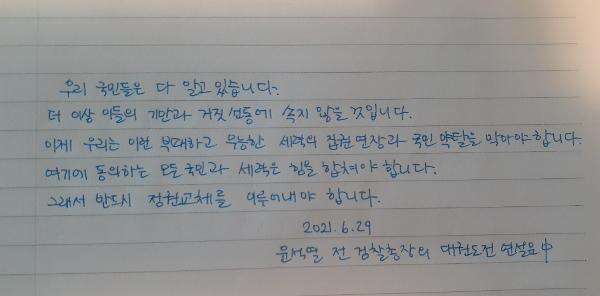 우리 국민들은 다 알고 있습니다.
더 이상 이들의 기만과 거짓 선동에 속지 않을 것입니다.
이제 우리는 이런 부패하고 무능한 세력의 집권 연장과 국민 약탈을 막아야 합니다.
여기에 동의하는 모든 국민과 세력은 힘을 합쳐야 합니다.
그래서 반드시 정권교체를 이루어내야 합니다.
2021.6.29
윤석열 전 검찰총장의 대권도전 연설요中